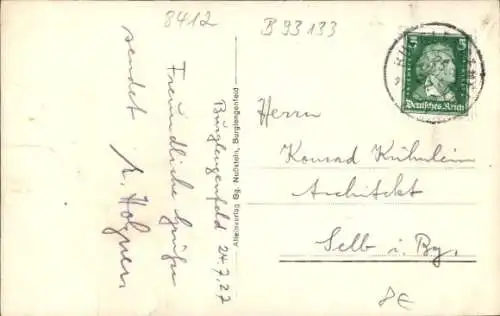 8412
B 93133
Burglengenfeld 24.7.27
Freundliche Grüße
sendet
Alleinverlag Gg. Nachstein, Burglengenfeld
5 5
Deutsches Reich
Herrn
Konrad Kühnlein
Architekt
Selb i. By.